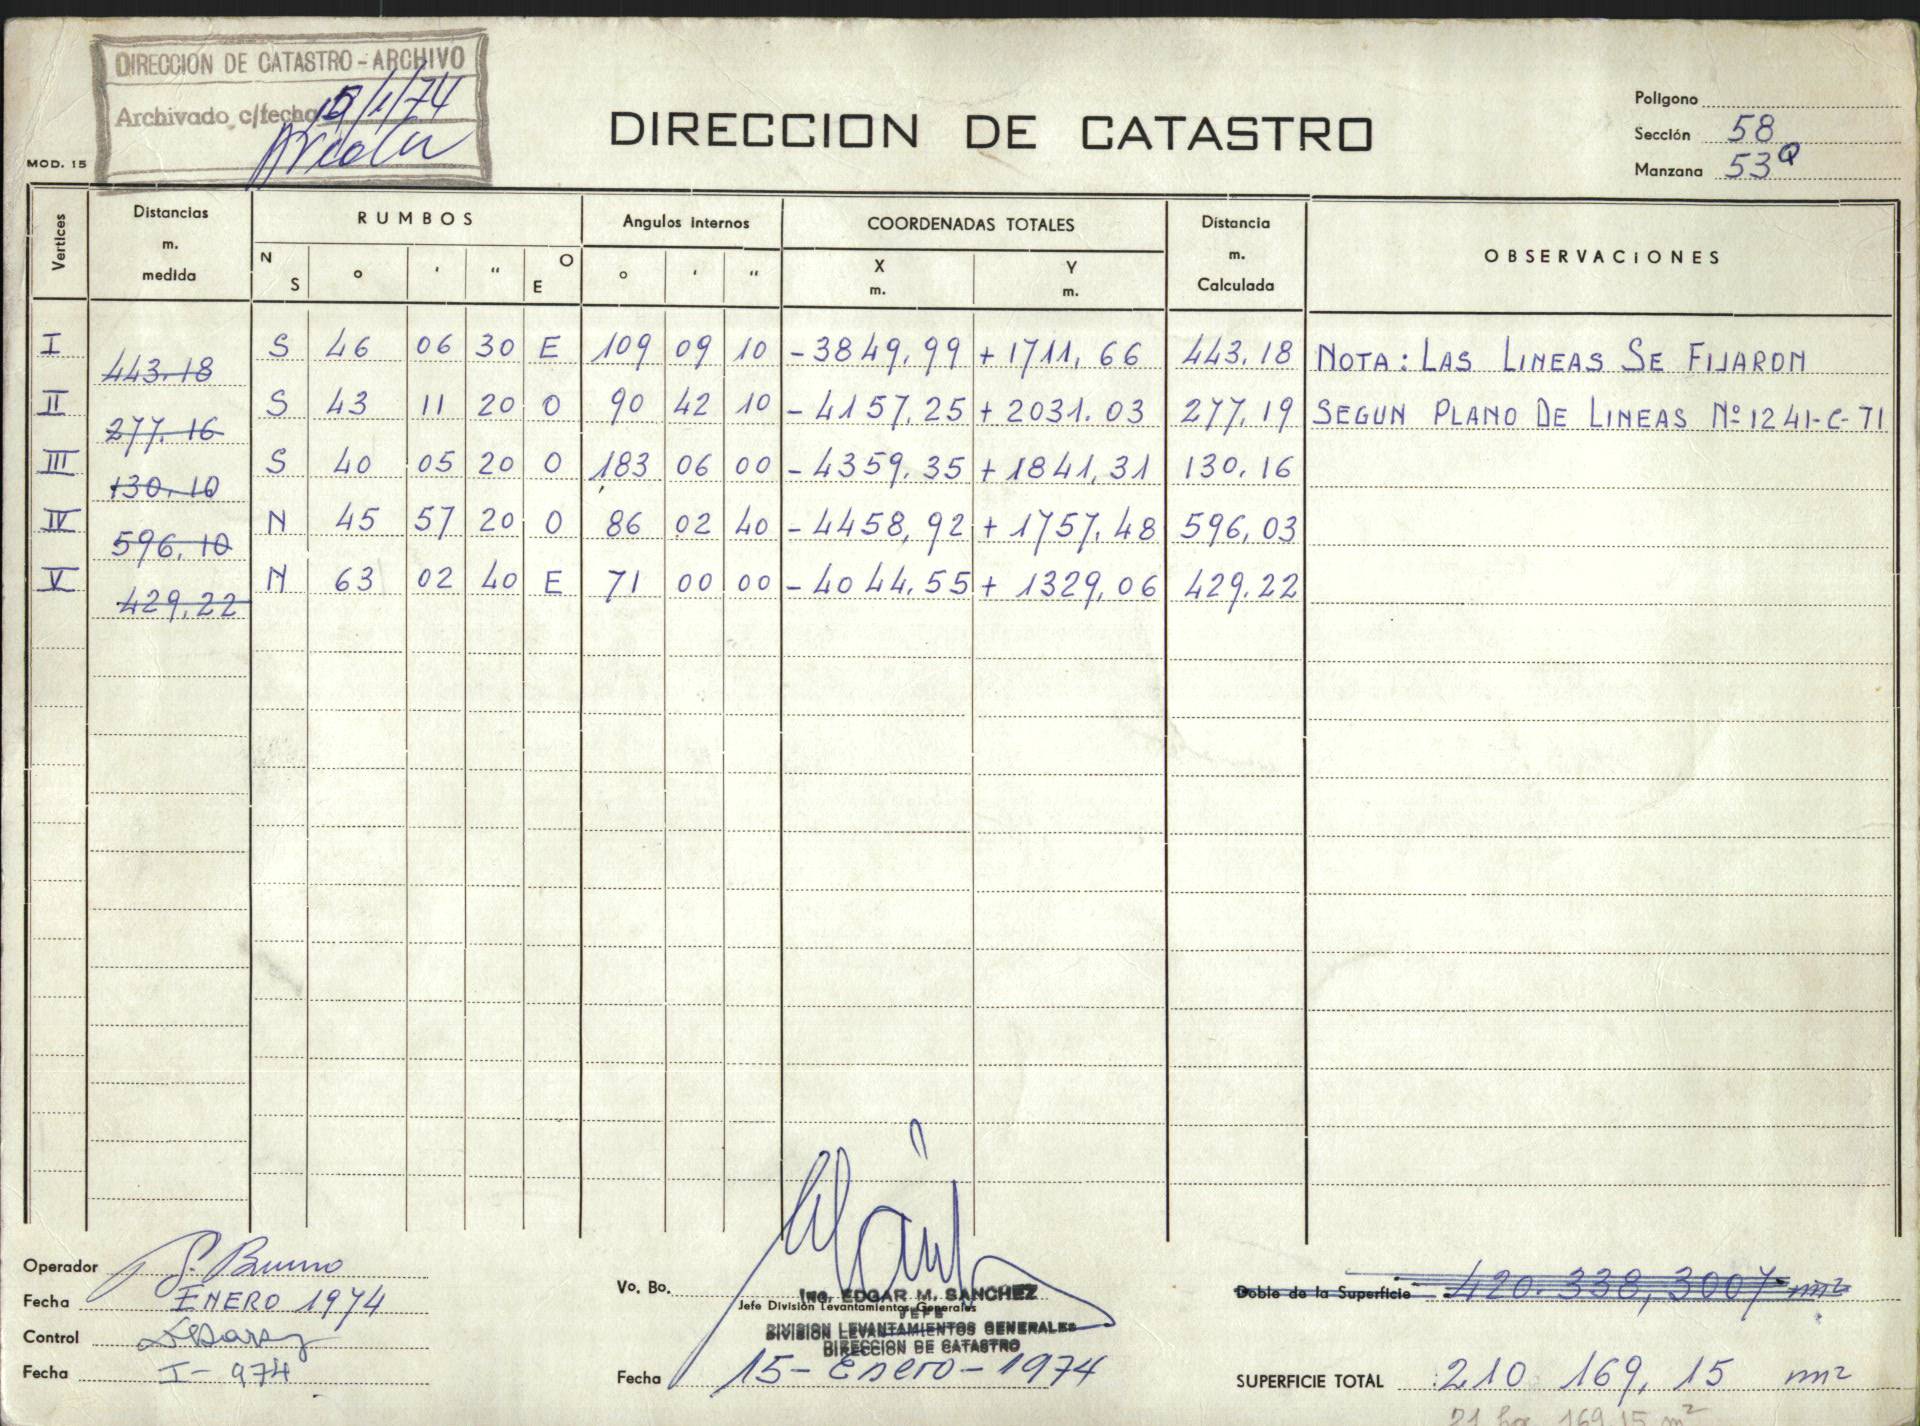 DIRECCION DE CATASTRO - ARCHIVO
Archivado c/fecha 15/1/74
MOD. 15
DIRECCION DE CATASTRO
Poligono
Sección 58
Manzana 53Q
Vertices Distancias m. medida RUMBOS Angulos internos COORDENADAS TOTALES Distancia m. Calculada OBSERVACIONES
N S ° ' " O E ° ' " X m. Y m.
I 443.18 S 46 06 30 E 109 09 10 -3849,99 +1711,66 443.18 NOTA: LAS LINEAS SE FIJARON
II 277.16 S 43 11 20 O 90 42 10 -4157,25 +2031.03 277,19 SEGUN PLANO DE LINEAS Nº 1241-C-71
III 130.10 S 40 05 20 O 183 06 00 -4359,35 +1841,31 130,16
IV 596,10 N 45 57 20 O 86 02 40 -4458,92 +1757,48 596,03
V 429,22 N 63 02 40 E 71 00 00 -4044,55 +1329,06 429,22
Operador
Fecha ENERO 1974
Control
Fecha I-974
Vo. Bo.
Ing. EDGAR M. SANCHEZ
Jefe División Levantamientos Generales
JEFE
DIVISION LEVANTAMIENTOS GENERALES
DIRECCION DE CATASTRO
Fecha 15-Enero-1974
Doble de la Superficie 420.338,3007 m²
SUPERFICIE TOTAL 210 169,15 m²
21 ha 169,15 m²